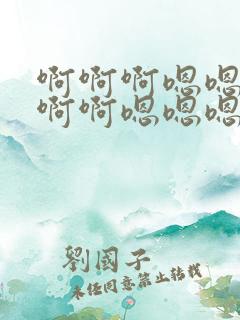 啊啊啊嗯嗯
啊啊嗯嗯嗯
劉國子
未經同意禁止轉載